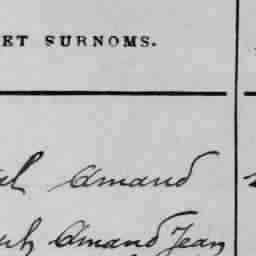 ET SURNOMS.
Amand
Amand Jean